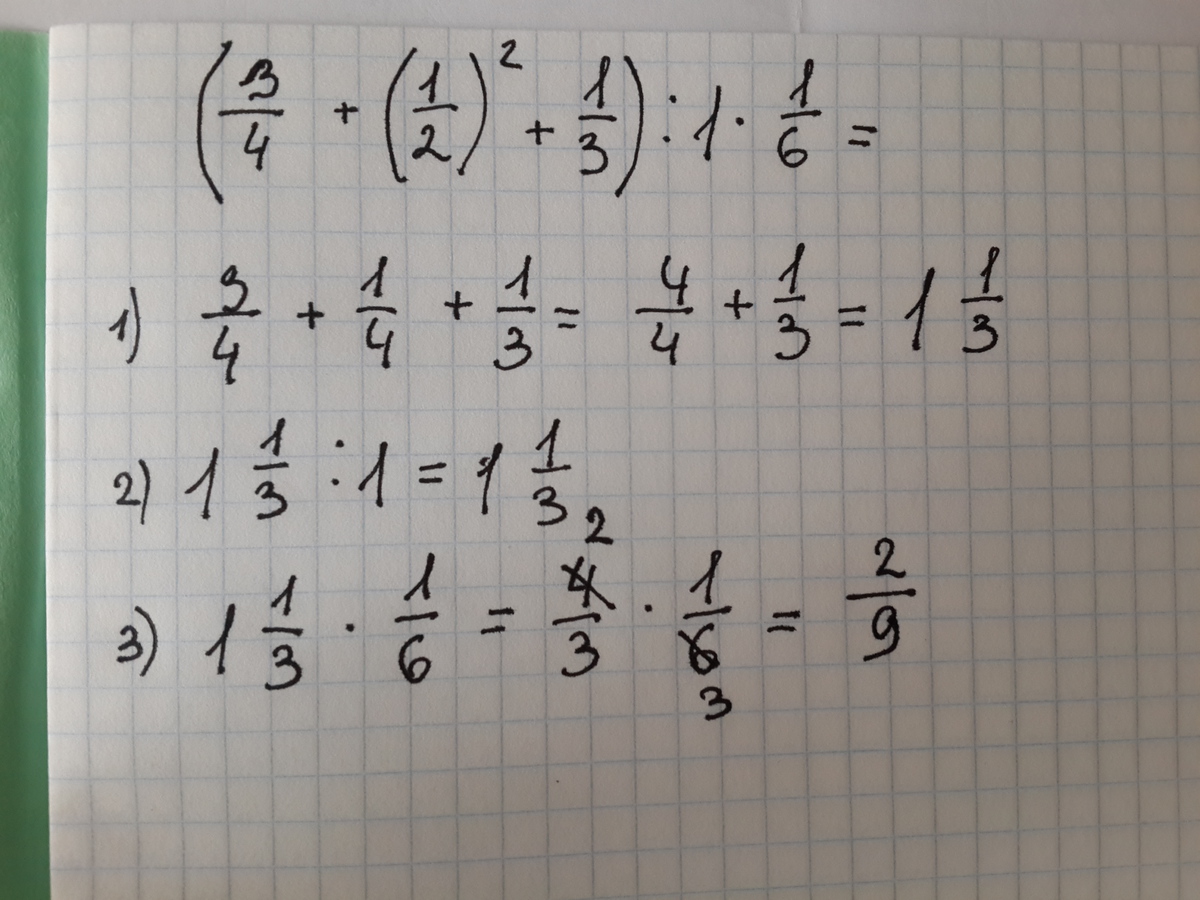 (3/4 + (1/2)² + 1/3) : 1 · 1/6 =
1) 3/4 + 1/4 + 1/3 = 4/4 + 1/3 = 1 1/3
2) 1 1/3 : 1 = 1 1/3
3) 1 1/3 · 1/6 = 4/3 · 1/6 = 2/9
2
3